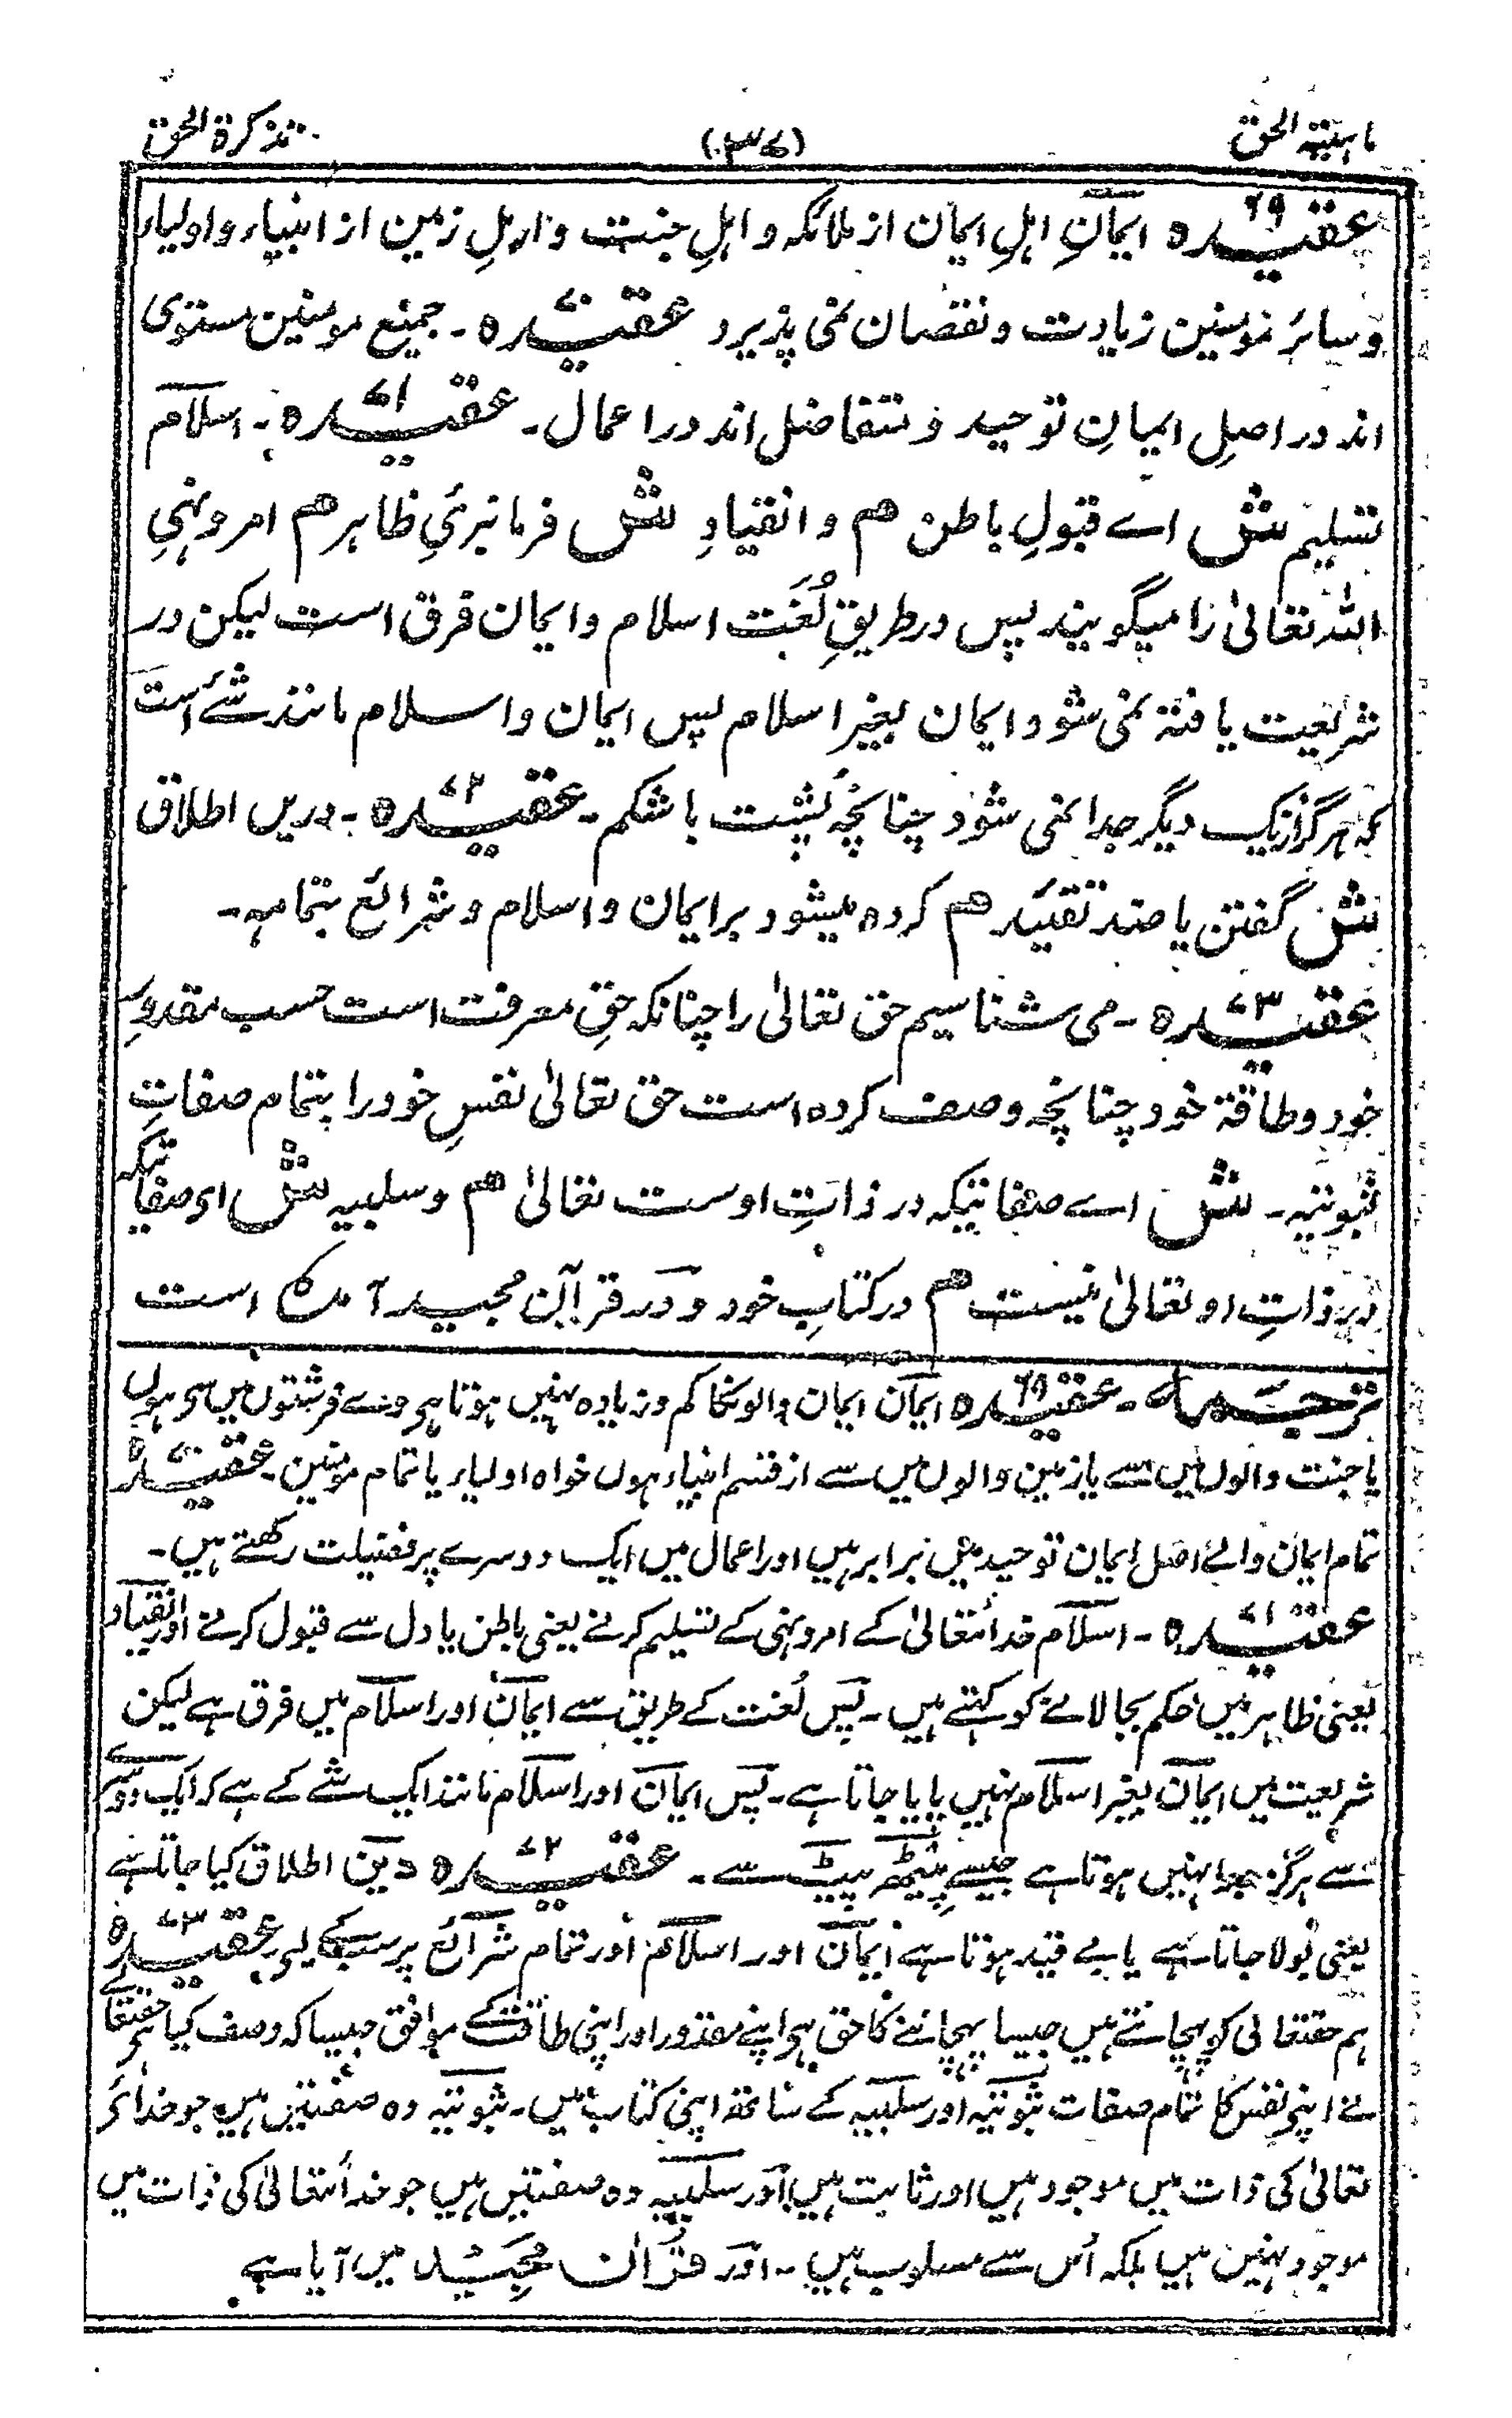 ماہیتہ الحق (۳۷) تذکرۃ الحق
عقیدہ ۶۹ ایمانِ اہلِ ایمان از ملائکہ و اہلِ جنت و اہلِ زمین از انبیاء و اولیاء
و سائر مومنین زیادت و نقصان نمی پذیرد عقیدہ ۷۰ ۔ جمیع مومنین مستوی
اند در اصلِ ایمانِ توحید و متفاضل اند در اعمال ۔ عقیدہ ۷۱ ۔ اسلام
تسلیم ش اے قبولِ باطن ھم و انقیادِ ش فرمانبرئِ ظاہر ھم امر و نہیِ
اللہ تعالیٰ را میگویند پس در طریقِ لُغت اسلام و ایمان فرق است لیکن در
شریعت یافتہ نمی شود ایمان بغیر اسلام پس ایمان و اسلام مانند شئے است
کہ ہرگز از یک دیگر جدا نمی شود چنانچہ پُشت با شکم ۔ عقیدہ ۷۲ ۔ دریں اطلاق
ش گفتن یا ضد تقیید ھم کردہ میشود بر ایمان و اسلام و شرائع بتمامہ ۔
عقیدہ ۷۳ ۔ می شناسیم حق تعالیٰ را چنانکہ حقِ معرفت است حسب مقدورِ
خود و طاقۃ خود چنانچہ وصف کردہ است حق تعالیٰ نفسِ خود را بتمام صفاتِ
ثبوتیہ ۔ ش اے صفاتیکہ در ذاتِ اوست تعالیٰ ھم و سلبیہ ش ای صفاتیکہ
در ذاتِ او تعالیٰ نیست ھم در کتابِ خود و در قرآن مجید آمدہ است
ترجمہ ۔ عقیدہ ۶۹ ایمان ایمان والونکا کم و زیادہ نہیں ہوتا ہی وے فرشتوں میں سی ہوں
یا جنت والوں میں سے یا زمین والوں میں سے از قسم انبیاء ہوں خواہ اولیاء یا تمام مومنین ۔ عقیدہ ۷۰
تمام ایمان والے اصل ایمان توحید میں برابر ہیں اور اعمال میں ایک دوسرے پر فضیلت رکھتے ہیں ۔
عقیدہ ۷۱ ۔ اسلام خدائتعالیٰ کے امر و نہی کے تسلیم کرنے یعنی باطن یا دل سے قبول کرنے اور انقیاد
یعنی ظاہر میں حکم بجا لانے کو کہتے ہیں ۔ پس لُغت کے طریق سے ایمان اور اسلام میں فرق ہے لیکن
شریعت میں ایمان بغیر اسلام نہیں پایا جاتا ہے ۔ پس ایمان اور اسلام مانند ایک شے کے ہے کہ ایک دوسرے
سے ہرگز جدا نہیں ہوتا ہے جیسے پیٹھ پیٹ سے ۔ عقیدہ ۷۲ دین اطلاق کیا جاتا ہے
یعنی بولا جاتا ہے یا بے قید ہوتا ہے ایمان اور اسلام اور تمام شرائع پر سبکے لیے عقیدہ ۷۳
ہم حقتعالی کو پہچانتے ہیں جیسا پہچاننے کا حق ہی اپنے مقدور اور اپنی طاقت کے موافق جیسا کہ وصف کیا ہی حقتعالے
نے اپنی نفس کا تمام صفات ثبوتیہ اور سلبیہ کے ساتھ اپنی کتاب میں ۔ ثبوتیہ وہ صفتیں ہیں جو خدائے
تعالیٰ کی ذات میں موجود ہیں اور ثابت ہیں اور سلبیہ وہ صفتیں ہیں جو خدائتعالیٰ کی ذات میں
موجود نہیں ہیں بلکہ اُس سے مسلوب ہیں ۔ اور قرآن مجید میں آیا ہے